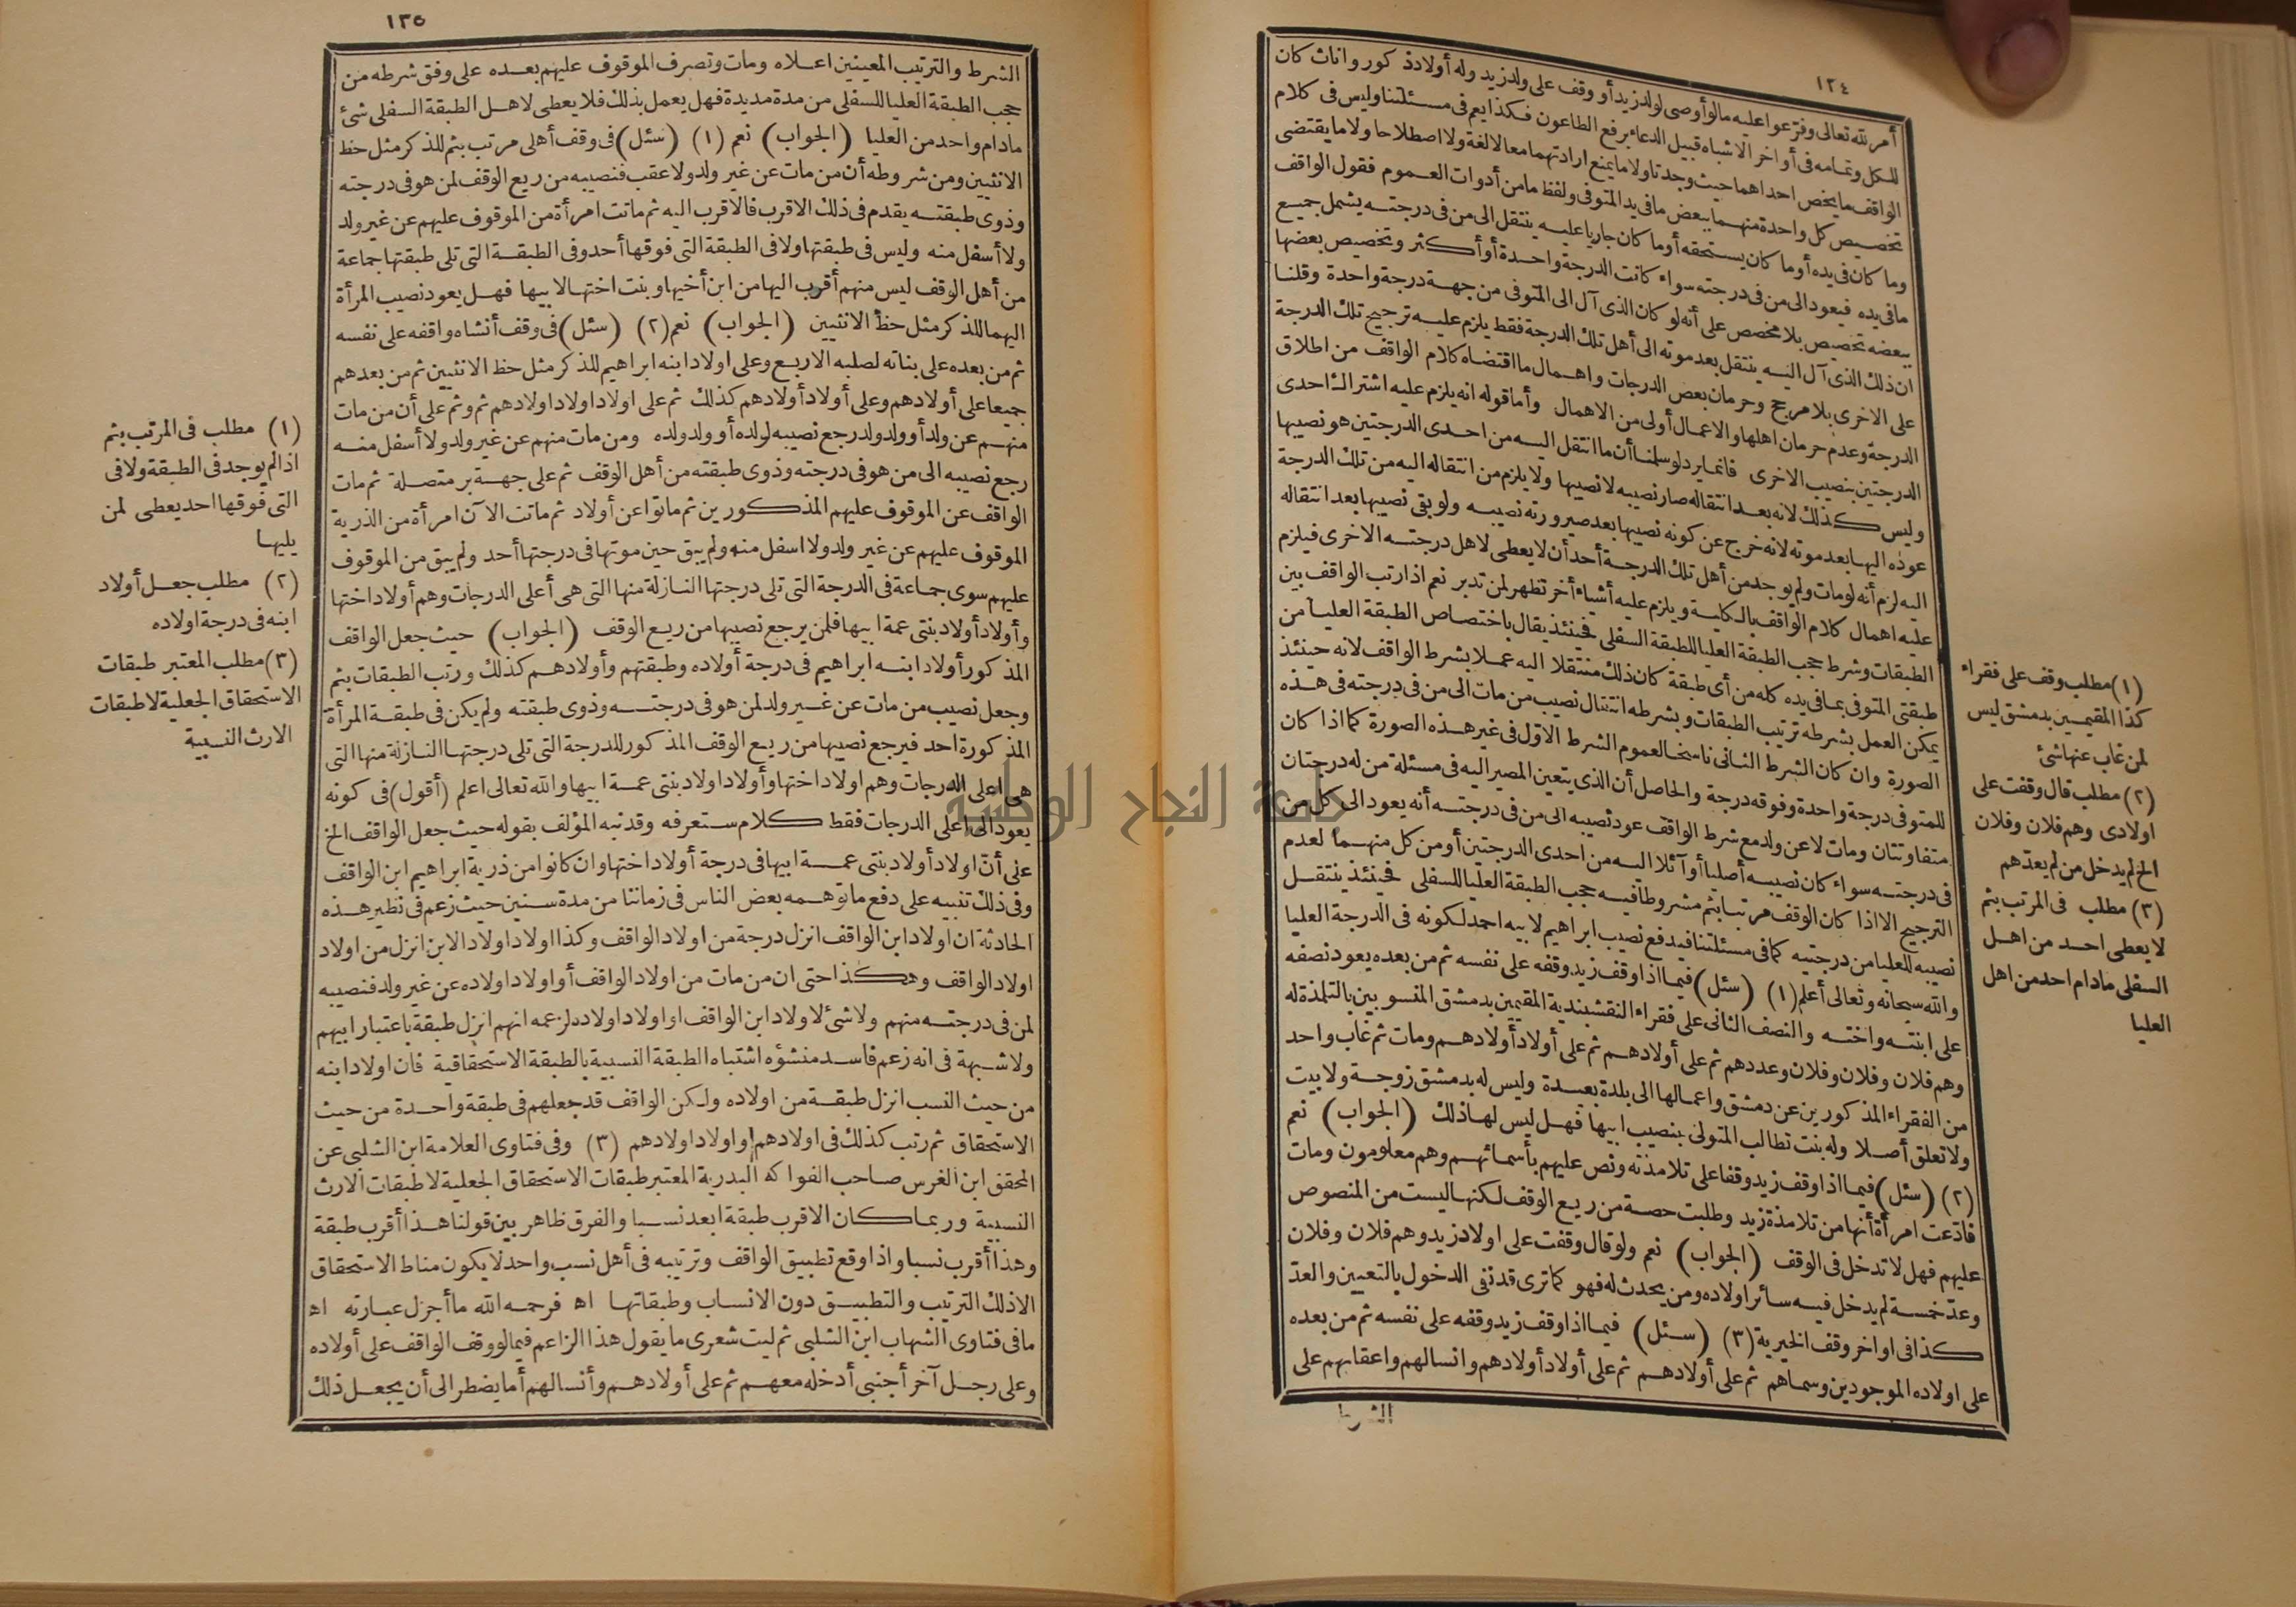 ١٣٤
أمر لله تعالى وفرّعوا عليه مالو أوصى لولد زيد أو وقف على ولد زيد وله أولاد ذكور واناث كان
للكل وتمامه فى أواخر الاشباه قبيل الدعاء برفع الطاعون فكذا يعم فى مسئلتنا وليس فى كلام
الواقف ما يخص احداهما حيث وجدتا ولا ما يمنع ارادتهما معا لا لغة ولا اصطلاحا ولا ما يقتضى
تخصيص كل واحدة منهما ببعض ما فى يد المتوفى ولفظ ما من أدوات العموم فقول الواقف
وما كان فى يده أو ما كان يستحقه أو ما كان جاريا عليه ينتقل الى من فى درجته يشمل جميع
ما فى يده فيعود الى من فى درجته سواء كانت الدرجة واحدة أو أكثر وتخصيص بعضها
ببعضه تخصيص بلا مخصص على أنه لو كان الذى آل الى المتوفى من جهة درجة واحدة وقلنا
ان ذلك الذى آل اليه ينتقل بعد موته الى أهل تلك الدرجة فقط يلزم عليه ترجيح تلك الدرجة
على الاخرى بلا مرجح وحرمان بعض الدرجات واهمال ما اقتضاه كلام الواقف من اطلاق
الدرجة وعدم حرمان اهلها والاعمال أولى من الاهمال وأما قوله انه يلزم عليه اشتراك احدى
الدرجتين بنصيب الاخرى فانما يرد لو سلمنا أن ما انتقل اليه من احدى الدرجتين هو نصيبها
وليس كذلك لانه بعد انتقاله صار نصيبه لا نصيبها ولا يلزم من انتقاله اليه من تلك الدرجة
عوده اليها بعد موته لانه خرج عن كونه نصيبها بعد صيرورته نصيبه ولو بقى نصيبها بعد انتقاله
اليه لزم أنه لو مات ولم يوجد من أهل تلك الدرجة أحد أن لا يعطى لاهل درجته الاخرى فيلزم
عليه اهمال كلام الواقف بالكلية ويلزم عليه أشياء أخر تظهر لمن تدبر نعم اذا رتب الواقف بين
الطبقات وشرط حجب الطبقة العليا للطبقة السفلى فحينئذ يقال باختصاص الطبقة العليا من
طبقتى المتوفى بما فى يده كله من أى طبقة كان ذلك منتقلا اليه عملا بشرط الواقف لانه حينئذ
يمكن العمل بشرطه ترتيب الطبقات وبشرطه انتقال نصيب من مات الى من فى درجته فى هذه
الصورة وان كان الشرط الثانى ناسخا لعموم الشرط الاوّل فى غير هذه الصورة كما اذا كان
للمتوفى درجة واحدة وفوقه درجة والحاصل أن الذى يتعين المصير اليه فى مسئلة من له درجتان
متفاوتتان ومات لا عن ولد مع شرط الواقف عود نصيبه الى من فى درجته أنه يعود الى كل من
فى درجته سواء كان نصيبه أصليا أو آئلا اليه من احدى الدرجتين أو من كل منهما لعدم
الترجيح الا اذا كان الوقف مرتبا بثم مشروطا فيه حجب الطبقة العليا للسفلى فحينئذ ينتقل
نصيبه للعليا من درجتيه كما فى مسئلتنا فيدفع نصيب ابراهيم لابيه احمد لكونه فى الدرجة العليا
والله سبحانه وتعالى أعلم (١) (سئل) فيما اذا وقف زيد وقفه على نفسه ثم من بعده يعود نصفه
على ابنته واخته والنصف الثانى على فقراء النقشبندية المقيمين بدمشق المنسوبين بالتلمذة له
وهم فلان وفلان وفلان وعددهم ثم على أولادهم ثم على أولاد أولادهم ومات ثم غاب واحد
من الفقراء المذكورين عن دمشق واعمالها الى بلدة بعيدة وليس له بدمشق زوجة ولا بيت
ولا تعلق أصلا وله بنت تطالب المتولى بنصيب ابيها فهل ليس لها ذلك (الجواب) نعم
(٢) (سئل) فيما اذا وقف زيد وقفا على تلامذته ونص عليهم بأسمائهم وهم معلومون ومات
فادّعت امرأة أنها من تلامذة زيد وطلبت حصة من ريع الوقف لكنها ليست من المنصوص
عليهم فهل لا تدخل فى الوقف (الجواب) نعم ولو قال وقفت على اولاد زيد وهم فلان وفلان
وعدّ خمسة لم يدخل فيه سائر اولاده ومن يحدث له فهو كما ترى قد نفى الدخول بالتعيين والعدّ
كذا فى اواخر وقف الخيرية (٣) (سئل) فيما اذا وقف زيد وقفه على نفسه ثم من بعده
على اولاده الموجودين وسماهم ثم على أولادهم ثم على أولاد أولادهم وانسالهم واعقابهم على
الشرط
(١) مطلب وقف على فقراء
كذا المقيمين بدمشق ليس
لمن غاب عنها شئ
(٢) مطلب قال وقفت على
اولادى وهم فلان وفلان
الخ لم يدخل من لم يعدّهم
(٣) مطلب فى المرتب بثم
لا يعطى احد من اهل
السفلى مادام احد من اهل
العليا
١٣٥
الشرط والترتيب المعينين اعلاه ومات وتصرف الموقوف عليهم بعده على وفق شرطه من
حجب الطبقة العليا للسفلى من مدة مديدة فهل يعمل بذلك فلا يعطى لاهل الطبقة السفلى شئ
مادام واحد من العليا (الجواب) نعم (١) (سئل) فى وقف أهلى مرتب بثم للذكر مثل حظ
الانثيين ومن شروطه أن من مات عن غير ولد ولا عقب فنصيبه من ريع الوقف لمن هو فى درجته
وذوى طبقته يقدم فى ذلك الاقرب فالاقرب اليه ثم ماتت امرأة من الموقوف عليهم عن غير ولد
ولا أسفل منه وليس فى طبقتها ولا فى الطبقة التى فوقها أحد وفى الطبقة التى تلى طبقتها جماعة
من أهل الوقف ليس منهم أقرب اليها من ابن أخيها وبنت اختها لابيها فهل يعود نصيب المرأة
اليهما للذكر مثل حظ الانثيين (الجواب) نعم (٢) (سئل) فى وقف أنشاه واقفه على نفسه
ثم من بعده على بناته لصلبه الاربع وعلى اولاد ابنه ابراهيم للذكر مثل حظ الانثيين ثم من بعدهم
جميعا على أولادهم وعلى أولاد أولادهم كذلك ثم على اولاد اولاد اولادهم ثم وثم على أن من مات
منهم عن ولد أو ولد ولد رجع نصيبه لولده أو ولد ولده ومن مات منهم عن غير ولد ولا أسفل منه
رجع نصيبه الى من هو فى درجته وذوى طبقته من أهل الوقف ثم على جهة بر متصلة ثم مات
الواقف عن الموقوف عليهم المذكورين ثم ماتوا عن أولاد ثم ماتت الآن امرأة من الذرية
الموقوف عليهم عن غير ولد ولا اسفل منه ولم يبق حين موتها فى درجتها أحد ولم يبق من الموقوف
عليهم سوى جماعة فى الدرجة التى تلى درجتها النازلة منها التى هى أعلى الدرجات وهم أولاد اختها
وأولاد أولاد بنتى عمة ابيها فلمن يرجع نصيبها من ريع الوقف (الجواب) حيث جعل الواقف
المذكور أولاد ابنه ابراهيم فى درجة أولاده وطبقتهم وأولادهم كذلك ورتب الطبقات بثم
وجعل نصيب من مات عن غير ولد لمن هو فى درجته وذوى طبقته ولم يكن فى طبقة المرأة
المذكورة احد فيرجع نصيبها من ريع الوقف المذكور للدرجة التى تلى درجتها النازلة منها التى
هى اعلى الدرجات وهم اولاد اختها وأولاد اولاد بنتى عمة ابيها والله تعالى اعلم (أقول) فى كونه
يعود الى اعلى الدرجات فقط كلام ستعرفه وقد نبه المؤلف بقوله حيث جعل الواقف الخ
على أن اولاد أولاد بنتى عمة ابيها فى درجة أولاد اختها وان كانوا من ذرية ابراهيم ابن الواقف
وفى ذلك تنبيه على دفع ما توهمه بعض الناس فى زماننا من مدة سنين حيث زعم فى نظير هذه
الحادثة ان اولاد ابن الواقف انزل درجة من اولاد الواقف وكذا اولاد اولاد الابن انزل من اولاد
اولاد الواقف وهكذا حتى ان من مات من اولاد الواقف أو اولاد اولاده عن غير ولد فنصيبه
لمن فى درجته منهم ولا شئ لاولاد ابن الواقف او اولاد اولاده لزعمه انهم انزل طبقة باعتبار ابيهم
ولا شبهة فى انه زعم فاسد منشؤه اشتباه الطبقة النسبية بالطبقة الاستحقاقية فان اولاد ابنه
من حيث النسب انزل طبقة من اولاده ولكن الواقف قد جعلهم فى طبقة واحدة من حيث
الاستحقاق ثم رتب كذلك فى اولادهم او اولاد اولادهم (٣) وفى فتاوى العلامة ابن الشلبى عن
المحقق ابن الغرس صاحب الفواكه البدرية المعتبر طبقات الاستحقاق الجعلية لا طبقات الارث
النسبية وربما كان الاقرب طبقة ابعد نسبا والفرق ظاهر بين قولنا هذا أقرب طبقة
وهذا أقرب نسبا واذا وقع تطبيق الواقف وترتيبه فى أهل نسب واحد لا يكون مناط الاستحقاق
الا ذلك الترتيب والتطبيق دون الانساب وطبقاتها اه فرحمه الله ما أجزل عبارته اه
ما فى فتاوى الشهاب ابن الشلبى ثم ليت شعرى ما يقول هذا الزاعم فيما لو وقف الواقف على أولاده
وعلى رجل آخر أجنبى أدخله معهم ثم على أولادهم وأنسالهم أما يضطر الى أن يجعل ذلك
(١) مطلب فى المرتب بثم
اذا لم يوجد فى الطبقة ولا فى
التى فوقها احد يعطى لمن
يليها
(٢) مطلب جعل أولاد
ابنه فى درجة اولاده
(٣) مطلب المعتبر طبقات
الاستحقاق الجعلية لا طبقات
الارث النسبية
جامعة النجاح الوطنية